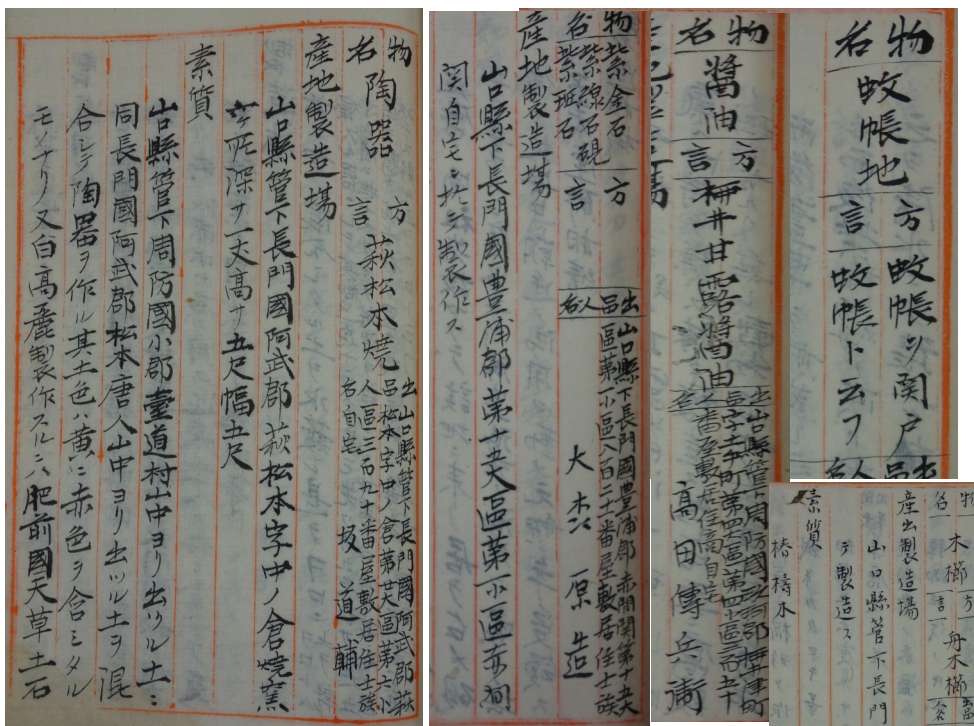 物名 陶器 方言 萩松本焼
出品人名 山口縣管下長門國阿武郡萩
松本字中ノ倉第廿大區第六小
區三百九十番屋敷居住士族
自宅 坂道輔
産地製造場
山口縣管下長門國阿武郡萩松本字中ノ倉焼窯
六ケ所深サ一丈高サ五尺幅五尺
素質
山口縣管下周防國小郡臺道村山中ヨリ出ツル土ニ
同長門國阿武郡松本唐人山中ヨリ出ツル土ヲ混
合シテ陶器ヲ作ル其土色ハ黄ニ赤色ヲ含ミタル
モノナリ又白高麗製作スルニハ肥前國天草土石
物名 紫金石
紫線石硯
紫斑石
方言
出品人名 山口縣下長門國豊浦郡赤間関第十五大
區第一小區八百二十一番屋敷居住士族
大森原造
産地製造場
山口縣下長門國豊浦郡第十五大區第一小區赤間
関自宅ニ於テ製作ス
物名 醤油
方言 柳井甘露醤油
山口縣管下周防國玖珂郡柳井津町
高田傳兵衛
物名 蚊帳地
方言 蚊帳ヲ関戸
蚊帳ト云フ
出品人名
物名 木櫛 方言 舟木櫛
産出製造場
山口縣管下長門
テ製造ス
素質
椿梼木